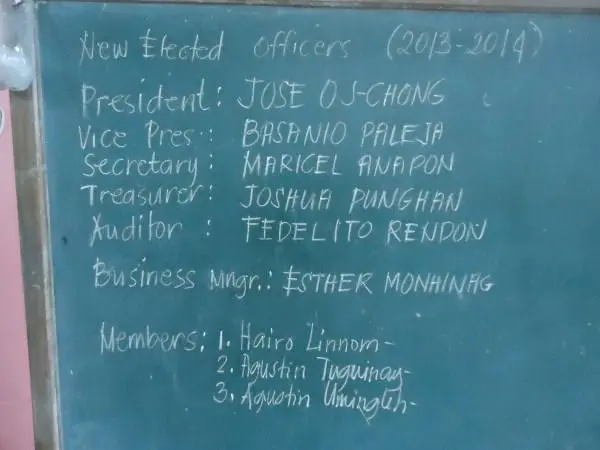 New Elected Officers (2013-2014)
President: JOSE OJ-CHONG
Vice Pres.: BASANIO PALEJA
Secretary: MARICEL ANAPON
Treasurer: JOSHUA PUNGHAN
Auditor : FEDELITO RENDON
Business Mngr.: ESTHER MONHINAG
Members: 1. Hairo Linnom-
2. Agustin Tuguinay-
3. Agustin